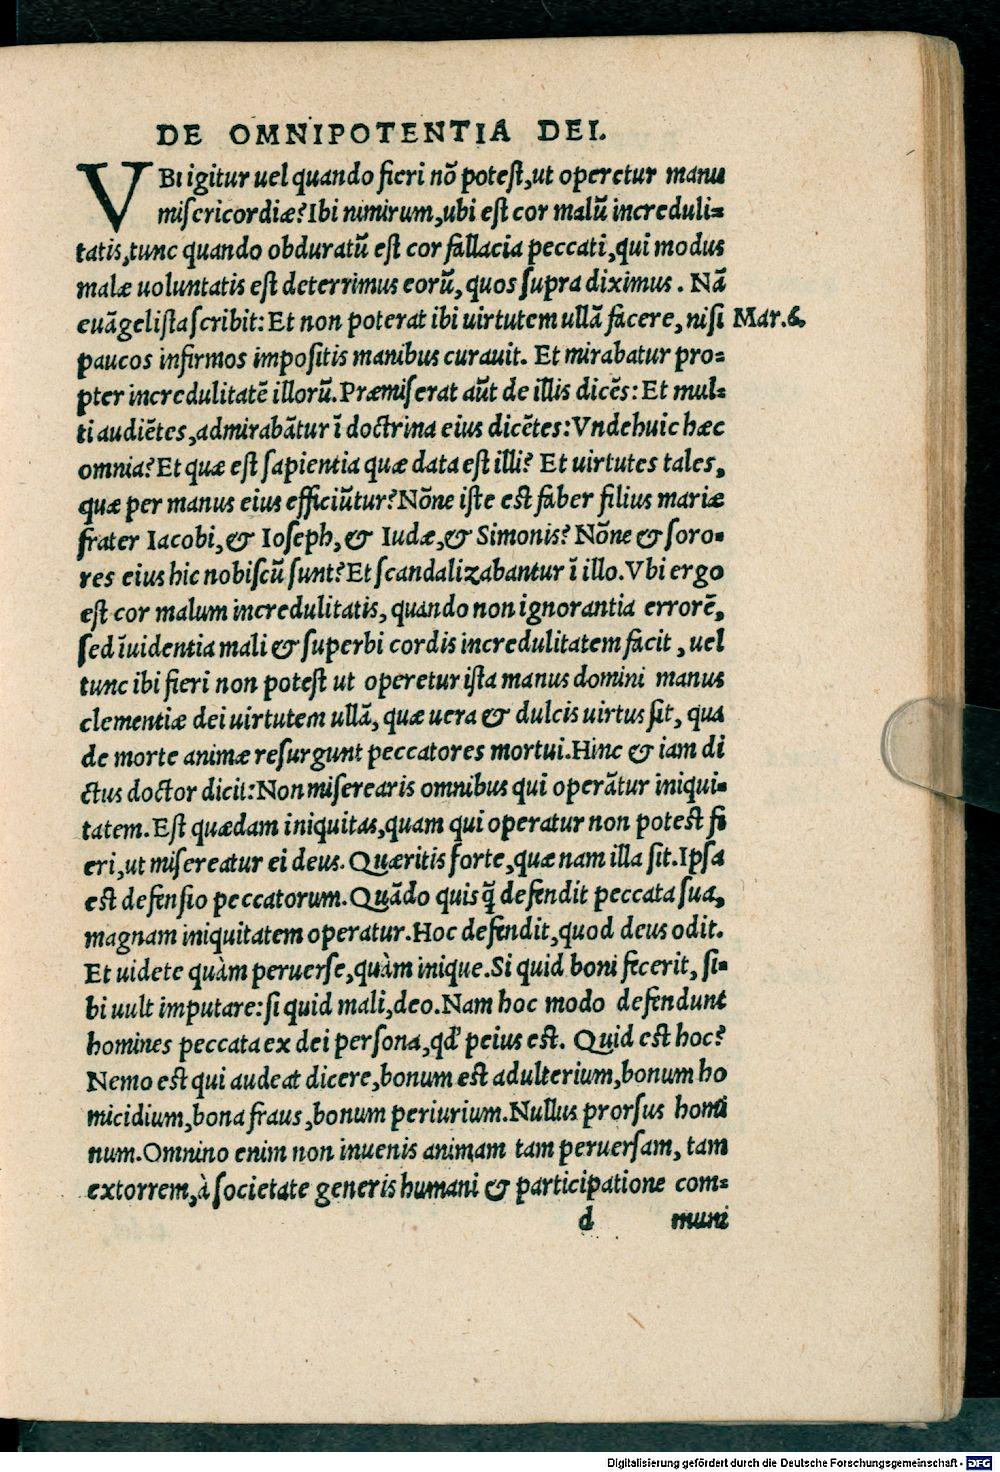 DE OMNIPOTENTIA DEI.
VBI igitur uel quando fieri nõ potest, ut operetur manu
misericordiæ? Ibi nimirum, ubi est cor malũ increduli=
tatis, tunc quando obduratũ est cor fallacia peccati, qui modus
malæ uoluntatis est deterrimus eorũ, quos supra diximus. Nã
euãgelista scribit: Et non poterat ibi uirtutem ullã facere, nisi Mar.6.
paucos infirmos impositis manibus curauit. Et mirabatur pro=
pter incredulitatẽ illorũ. Præmiserat aũt de illis dicẽs: Et mul=
ti audiẽtes, admirabãtur ĩ doctrina eius dicẽtes: Vnde huic hæc
omnia? Et quæ est sapientia quæ data est illi? Et uirtutes tales,
quæ per manus eius efficiũtur? Nõne iste est faber filius mariæ
frater Iacobi, & Ioseph, & Iudæ, & Simonis? Nõne & soro=
res eius hic nobiscũ sunt? Et scandalizabantur ĩ illo. Vbi ergo
est cor malum incredulitatis, quando non ignorantia errorẽ,
sed ĩuidentia mali & superbi cordis incredulitatem facit, uel
tunc ibi fieri non potest ut operetur ista manus domini manus
clementiæ dei uirtutem ullã, quæ uera & dulcis uirtus sit, qua
de morte animæ resurgunt peccatores mortui. Hinc & iam di
ctus doctor dicit: Non miserearis omnibus qui operãtur iniqui=
tatem. Est quædam iniquitas, quam qui operatur non potest fi
eri, ut misereatur ei deus. Quæritis forte, quæ nam illa sit. Ipsa
est defensio peccatorum. Quãdo quisq̃ defendit peccata sua,
magnam iniquitatem operatur. Hoc defendit, quod deus odit.
Et uidete quàm peruerse, quàm inique. Si quid boni fecerit, si=
bi uult imputare: si quid mali, deo. Nam hoc modo defendunt
homines peccata ex dei persona, qđ peius est. Quid est hoc?
Nemo est qui audeat dicere, bonum est adulterium, bonum ho
micidium, bona fraus, bonum periurium. Nullus prorsus homi
num. Omnino enim non inuenis animam tam peruersam, tam
extorrem, à societate generis humani & participatione com=
d muni
Digitalisierung gefördert durch die Deutsche Forschungsgemeinschaft - DFG